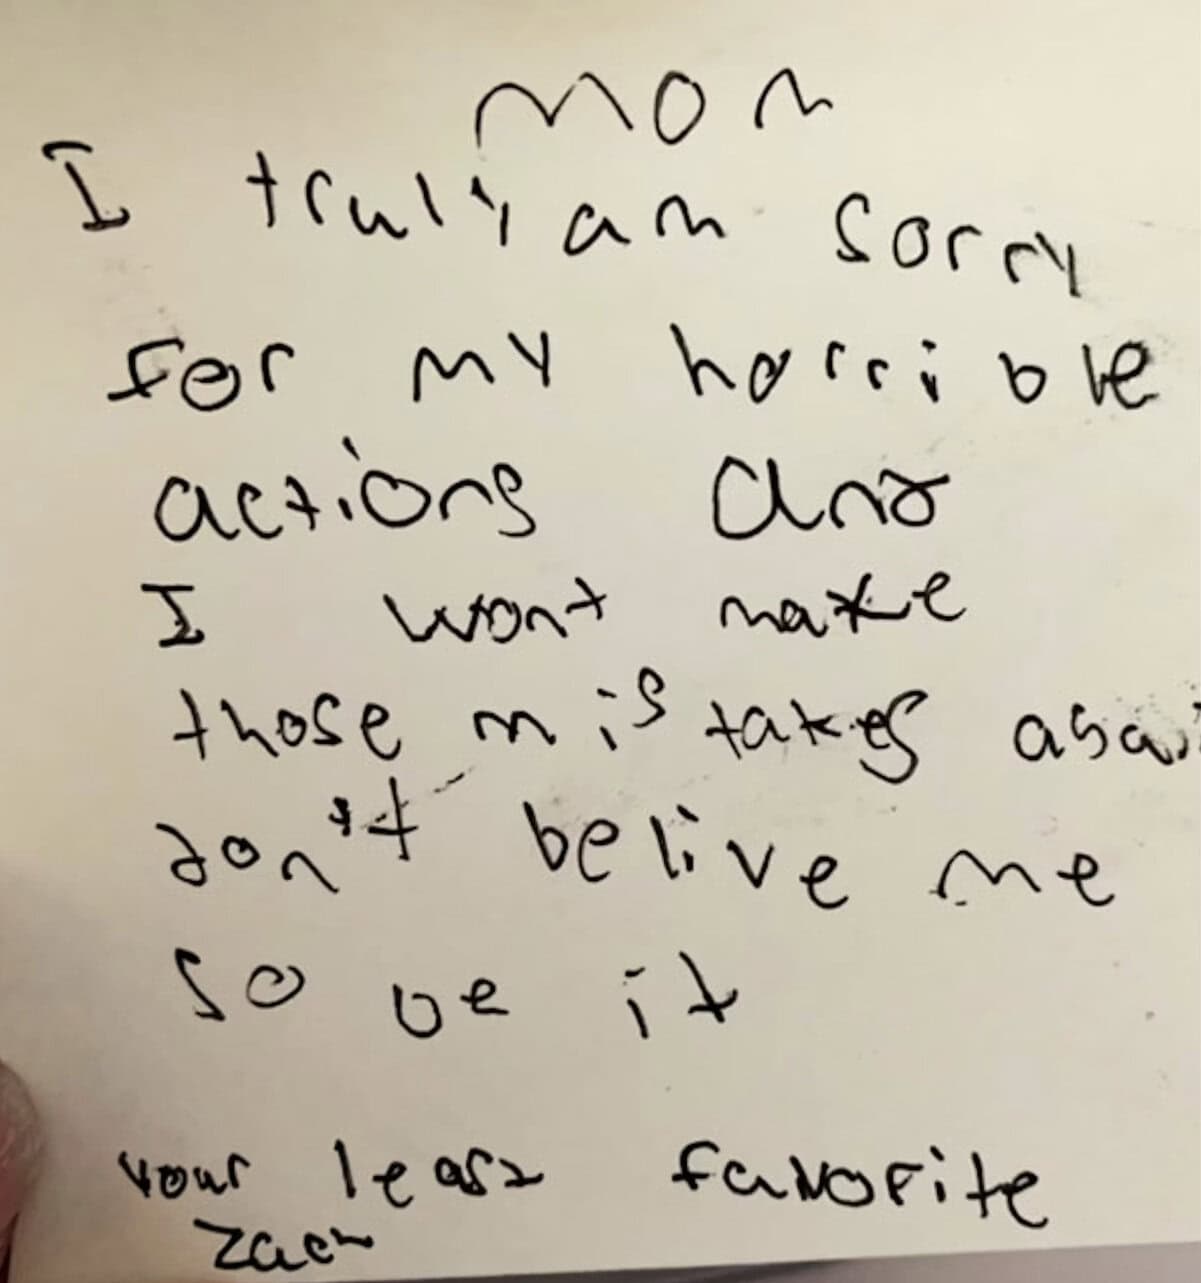 Mom
I truly am sorry
for my horrible
actions and
I wont make
those mistakes agai
don't belive me
so be it
your least favorite
Zach